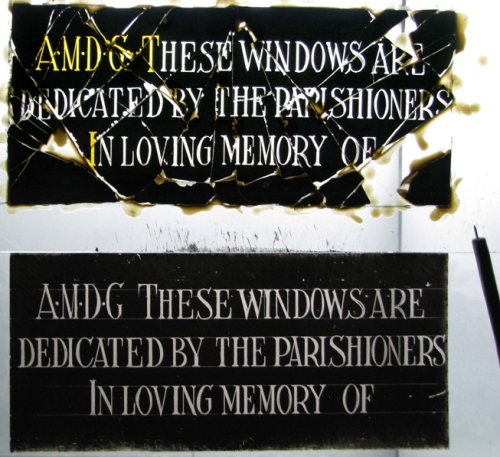 A·M·D·G· THESE WINDOWS ARE
DEDICATED BY THE PARISHIONERS
IN LOVING MEMORY OF
A·M·D·G THESE WINDOWS ARE
DEDICATED BY THE PARISHIONERS
IN LOVING MEMORY OF